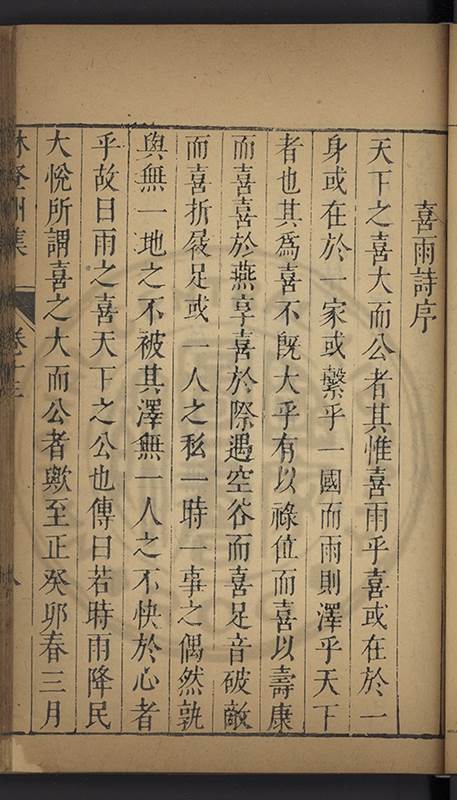 喜雨詩序
天下之喜大而公者其惟喜雨乎喜或在於一
身或在於一家或繫乎一國而雨則澤乎天下
者也其為喜不旣大乎有以祿位而喜以壽康
而喜喜於燕享喜於際遇空谷而喜足音破敵
而喜折屐足或一人之私一時一事之偶然孰
與無一地之不被其澤無一人之不快於心者
乎故曰雨之喜天下之公也傳曰若時雨降民
大悅所謂喜之大而公者歟至正癸卯春三月
林登州集 卷十三